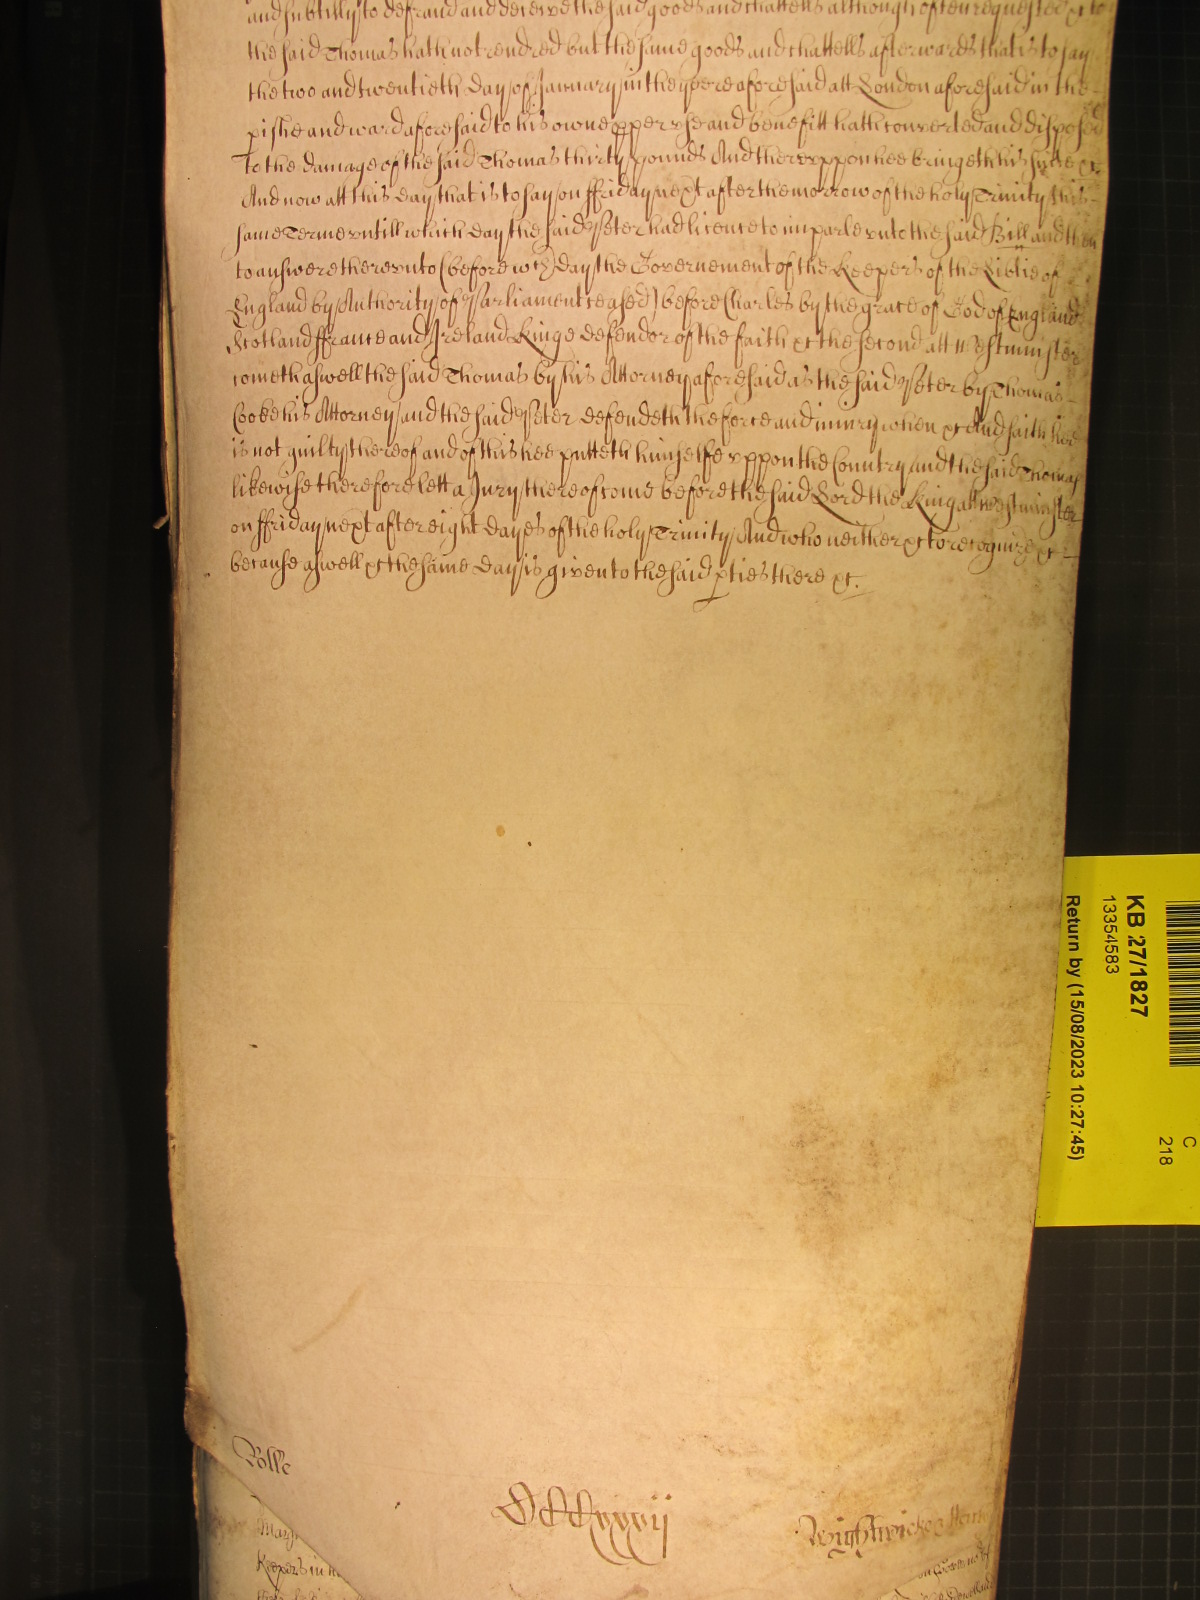 and subtilly to defraud and deceive the said goods and chattells although often requested &c to
the said Thomas hath not rendred but the same goods and chattells afterwards that is to say
the two and twentieth day of January in the yeere aforesaid att London aforesaid in the
pishe and ward aforesaid to his owne pper vse and benefitt hath converted and disposed
To the damage of the said Thomas thirty pounds And therevppon hee bringeth his suite &c
And now att this day that is to say on ffriday next after the morrow of the holy Trinity this
same Terme vntill which day the said Peter had licence to imparle vnto the said Bill and then
to answere therevnto (before wch day the Governement of the Keepers of the Libtie of
England by Authority of Parliament ceased) before Charles by the grace of God of England
Scotland ffrance and Ireland Kinge defendor of the faith &c the second att Westminster
cometh aswell the said Thomas by his Attorney aforesaid as the said Peter by Thomas
Cooke his Attorney and the said Peter defendeth the force and iniury when &c And saith hee
is not guilty thereof and of this hee putteth himselfe vppon the Country and the said Thomas
likewise therefore lett a Jury thereof come before the said Lord the King att Westminster
on ffriday next after eight dayes of the holy Trinity And who neither &c to recognize &c
because aswell &c the same day is given to the said pties there &c.
KB 27/1827
13354583
Return by (15/08/2023 10:27:45)
C
218
Rolle
CCCxxxij
Wightwicke
Keepers in